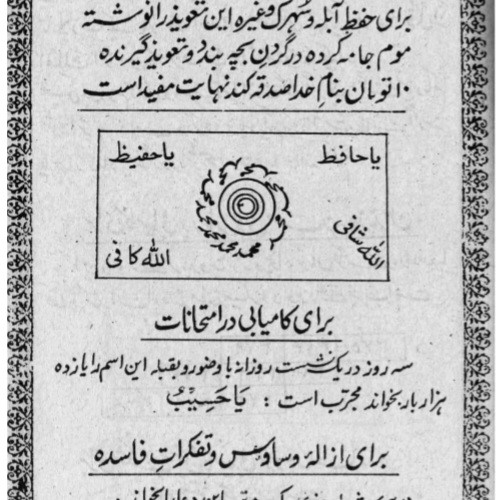 برای حفظِ آبله و سُهرک وغیره این تعویذ را نوشته
موم جامه کرده در گردنِ بچه بندد و تعویذ گیرنده
۱۰ تومان بنامِ خدا صدقه کند نهایت مفید است
یا حافظ
یا حفیظ
محمد محمد محمد محمد
الله شافی
الله کافی
برای کامیابی در امتحانات
سه روز در یک نشست روزانه با وضو رو بقبله این اسم را یازده
هزار بار بخواند مجرّب است : یَا حَسِیْبُ
برای ازالهٔ وساوس و تفکراتِ فاسده